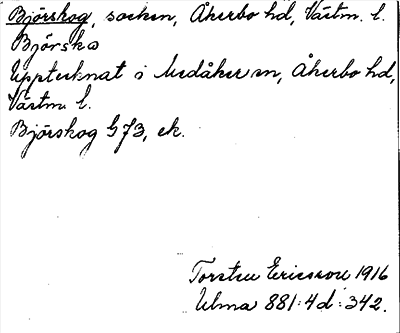 Björskog, socken, Åkerbo hd, Västm. l.
Björska
Upptecknat i Medåker sn, Åkerbo hd,
Västm l.
Björskog G73, ek.
Torsten Ericsson 1916
Ulma 881:4d:342.